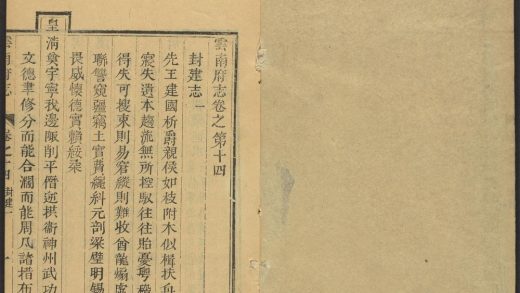 雲南府志卷之第十四
封建志一
先王建國析爵親侯如枝附木似楫扶
寖失遺本趨流無所控馭往往貽憂粵
得失可搜束則易窘縱則難收酋龍煽虐
聯讐窺疆竊土官費繩糾元剖梁璧明錫
畏威懷德實輯綏柔
皇清奠宇寧我邊陬削平僭逆拱衞神州武功
文德聿修分而能合濶而能周凡諸措布
雲南府志 卷之十四 封建一